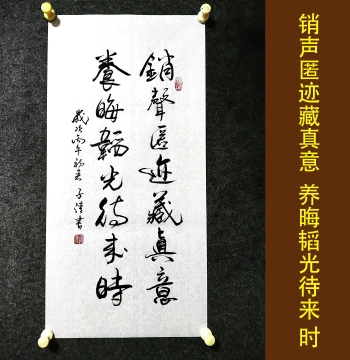 銷聲匿迹藏真意
養晦韜光待来時
歲次丙午初春子清書
销声匿迹藏真意 养晦韬光待来时